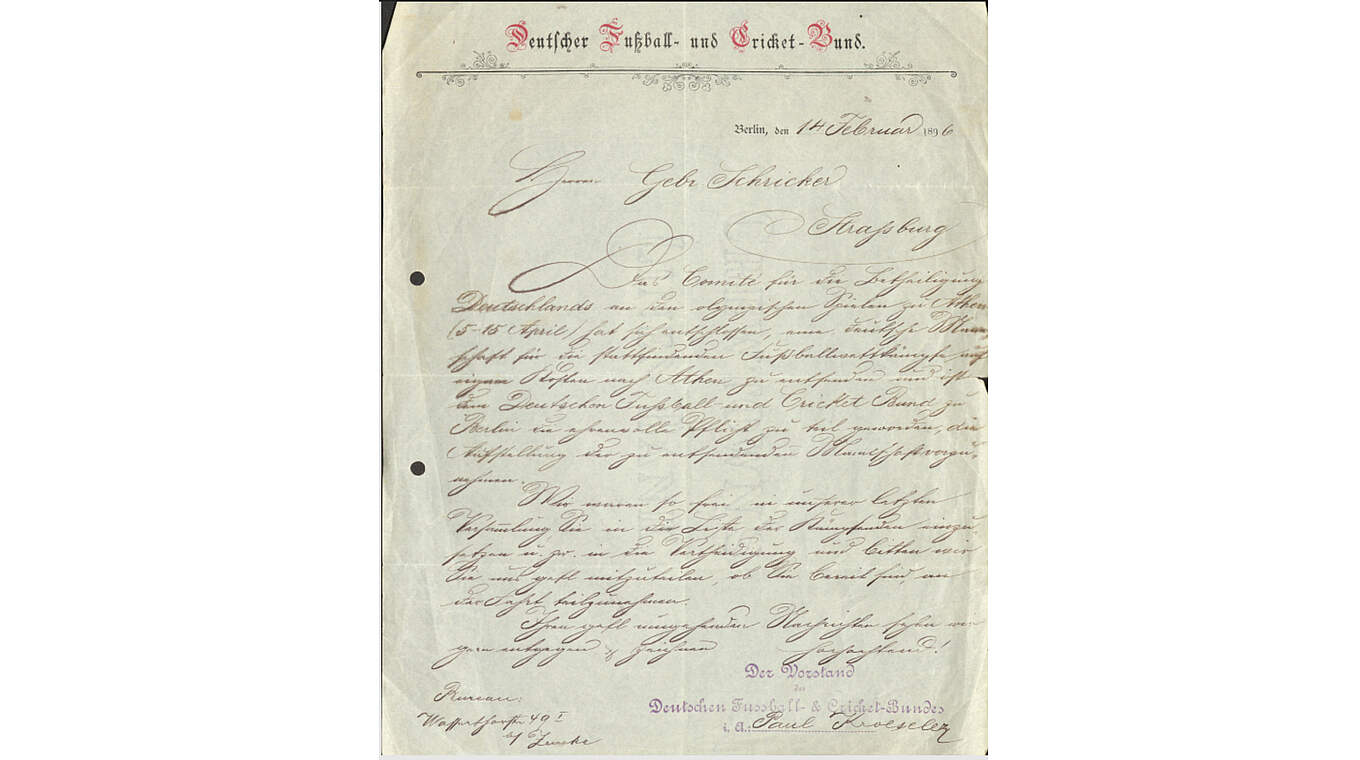 Deutscher Fußball- und Cricket-Bund.
Berlin, den 14 Februar 1896
Herren Gebr Schricker
Straßburg
Das Comité für die Betheiligung
Deutschlands an den olympischen Spielen zu Athen
(5-15 April) hat sich entschlossen, eine deutsche Mann-
schaft für die stattfindenden Fußballwettkämpfe auf
eigene Kosten nach Athen zu entsenden und ist
dem Deutschen Fussball- und Cricket Bund zu
Berlin die ehrenvolle Pflicht zu teil geworden, die
Aufstellung der zu entsendenden Mannschaft vorzu-
nehmen.
Wir waren so frei in unserer letzten
Versammlung Sie in die Liste der Kämpfenden einzu-
setzen u. zw. in die Vertheidigung und bitten wir
Sie uns gefl mitzuteilen, ob Sie bereit sind, an
der Fahrt teilzunehmen.
Ihren gefl umgehenden Nachrichten sehen wir
gern entgegen & zeichnen hochachtend!
Der Vorstand
des
Deutschen Fussball- & Cricket-Bundes
i. A.: Paul
Bureau:
49 I
b/